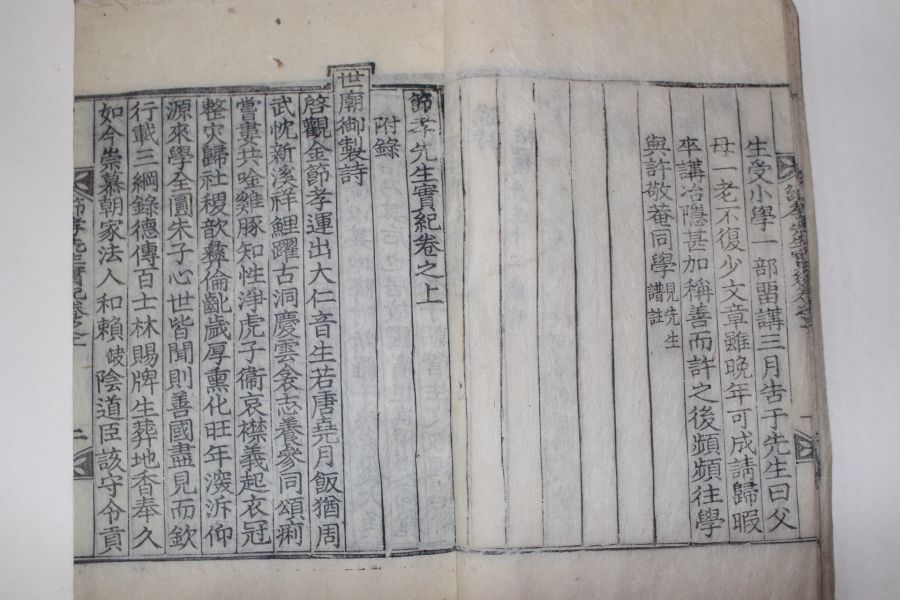 生受小學一部留講三月告于先生曰父
母一老不復少文章雖晚年可成請歸暇
卒講冶隱甚加稱善而許之後頻頻往學
與許敬菴同學見先生譜註
節孝先生實紀卷之上
附錄
世廟御製詩
啓觀金節孝運出大仁音生若唐堯月飯猶周
武忱新溪祥鯉躍古洞慶雲衾志養參同頌痢
嘗婁共唫雞豚知性淨虎子衞哀襟義起衣冠
整灾歸社稷歆彝倫亂歲厚熏化旺年深泝仰
源來學全圓朱子心世皆聞則善國盡見而欽
行載三綱錄德傳百士林賜牌生葬地香奉久
如今崇慕朝家法人和賴陰道臣該守令貢
節孝先生實紀卷之上
二